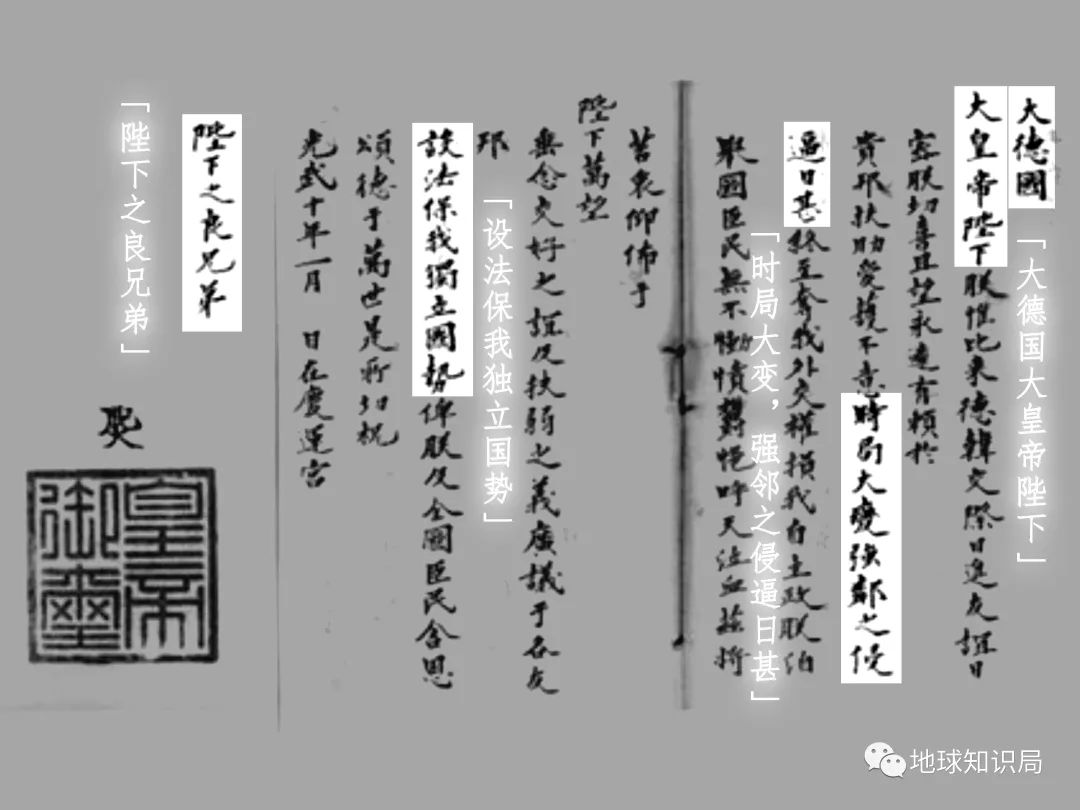 大德國
大皇帝陛下朕惟比來德韓交際日進友誼日
密朕切喜且望永遠有賴於
貴邦扶助愛護不意時局大變強鄰之侵
逼日甚終至奪我外交權損我自主政朕洎
國臣民無不慟憤鬱悒呼天泣血茲將
苦衷仰佈于
陛下萬望
垂念交好之誼及扶弱之義廣議于各友
邦
設法保我獨立國勢俾朕及全國臣民含恩
頌德于萬世是所切祝
光武十年一月 日在慶運宮
陛下之良兄弟
皇帝
御璽
「大德国大皇帝陛下」
「时局大变，强邻之侵逼日甚」
「设法保我独立国势」
「陛下之良兄弟」
地球知识局